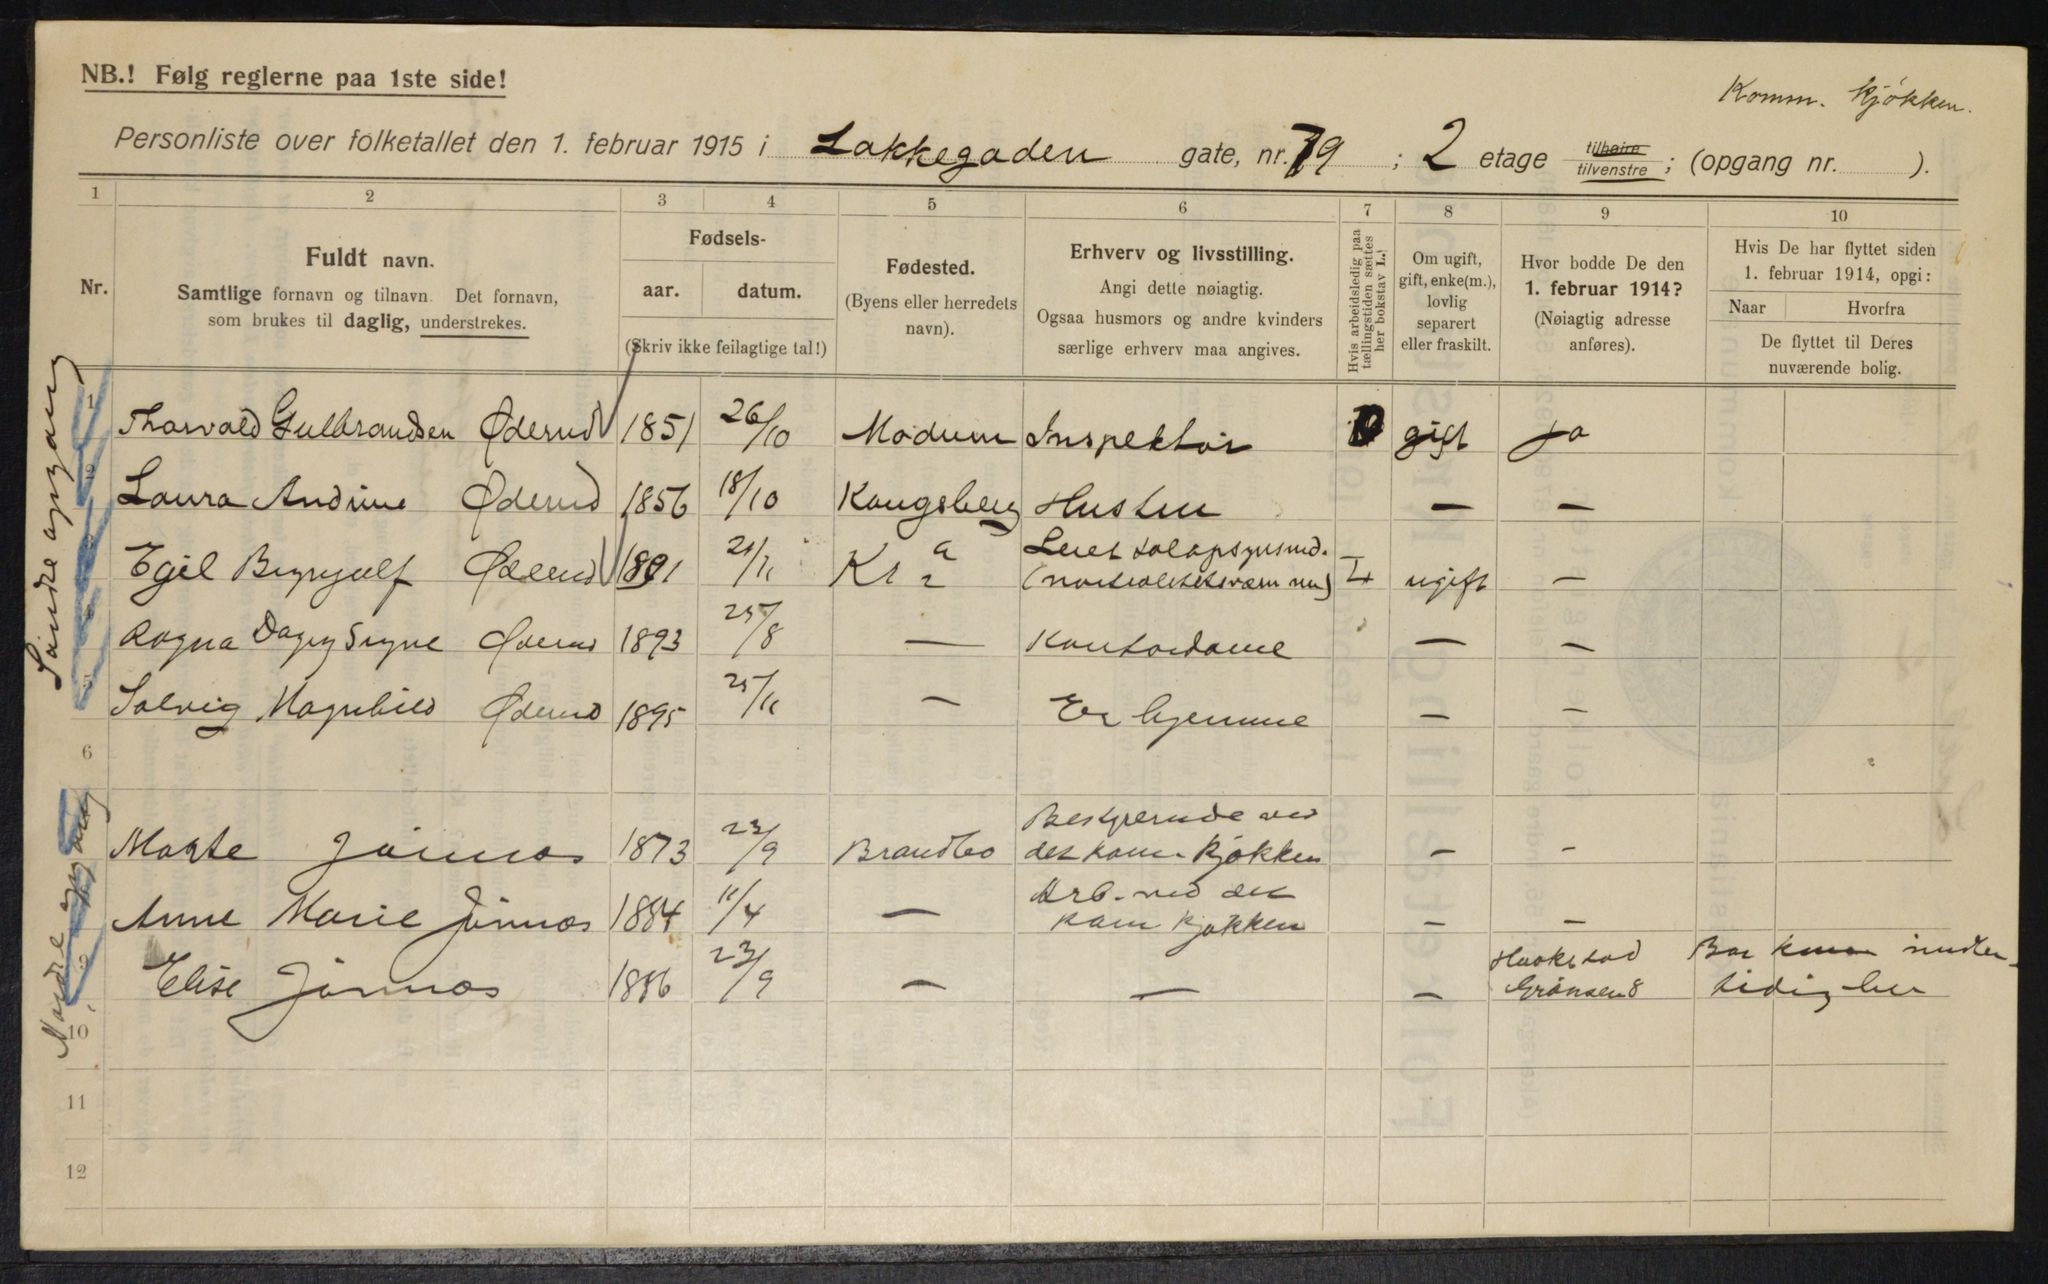 NB.! Følg reglerne paa 1ste side!
Komm. kjøkken.
Personliste over folketallet den 1. februar 1915 i Lakkegaden gate, nr. 79; 2 etage tilhøire tilvenstre; (opgang nr. ).
1 2 3 4 5 6 7 8 9 10
Nr.
Fuldt navn.
Samtlige fornavn og tilnavn. Det fornavn,
som brukes til daglig, understrekes.
Fødsels-
aar. datum.
(Skriv ikke feilagtige tal!)
Fødested.
(Byens eller herredets
navn).
Erhverv og livsstilling.
Angi dette nøiagtig.
Ogsaa husmors og andre kvinders
særlige erhverv maa angives.
Hvis arbeidsledig paa
tællingstiden sættes
her bokstav L.
Om ugift,
gift, enke(m.),
lovlig
separert
eller fraskilt.
Hvor bodde De den
1. februar 1914?
(Nøiagtig adresse
anføres).
Hvis De har flyttet siden
1. februar 1914, opgi:
Naar Hvorfra
De flyttet til Deres
nuværende bolig.
Søndre opgang
1 Thorvald Gulbrandsen Øderud 1851 26/10 Modum Inspektør gift ja
2 Laura Andrine Øderud 1856 18/10 Kongsberg Hustru — —
3 Egil Brynjulf Øderud 1891 21/11 Kr a L ugift —
4 Ragna Dagny Signe Øderud 1893 25/8 — Kontordame — —
5 Solveig Magnhild Øderud 1895 25/11 — Er hjemme — —
6
Nordre opgang
Marte Jønnes 1873 23/9 Brandbo Bestyrerinde ved
det kom. kjøkken — —
Anne Marie Jønnes 1884 11/4 — Arb. ved det
kom kjøkken — —
Elise Jønnes 1886 23/9 — — — Haakstad
Grønsen 8 Bor midler-
tidig her
10
11
12